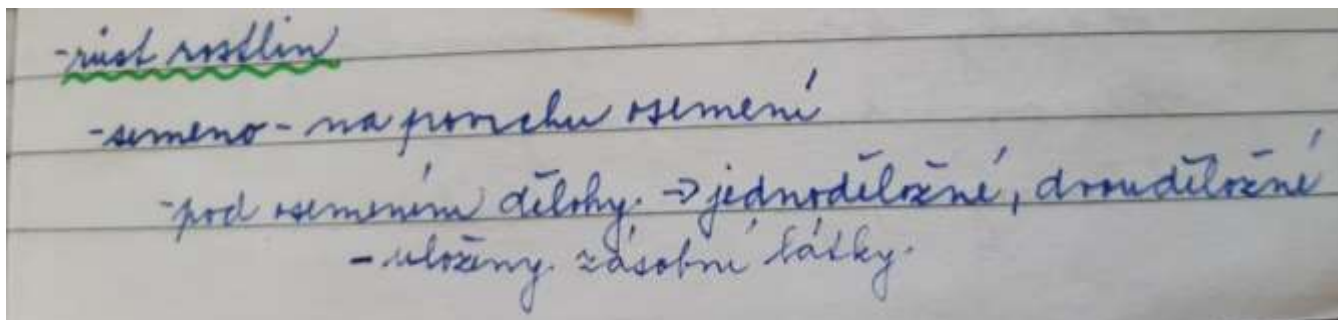 -růst rostlin
-semeno - na povrchu osemení
-pod osemením dělohy. → jednoděložné, dvouděložné
- uloženy zásobní látky.